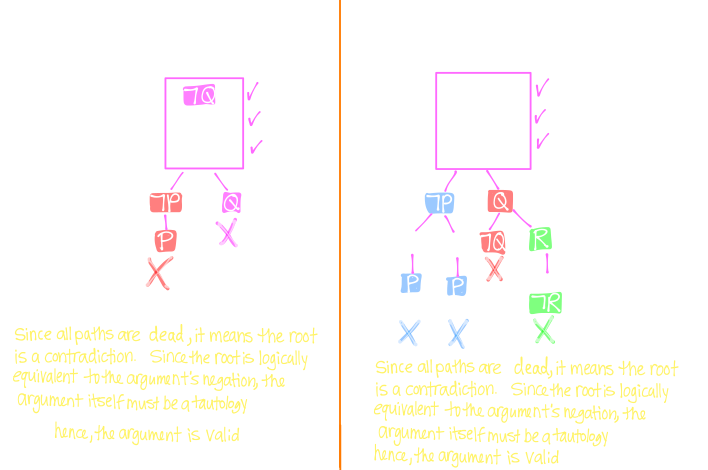 ¬Q
¬P
Q
P
Since all paths are dead, it means the root
is a contradiction. Since the root is logically
equivalent to the argument's negation, the
argument itself must be a tautology
hence, the argument is valid
¬P
Q
¬Q
R
P
P
¬R
Since all paths are dead, it means the root
is a contradiction. Since the root is logically
equivalent to the argument's negation, the
argument itself must be a tautology
hence, the argument is valid